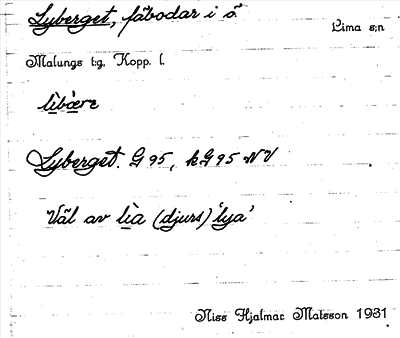 Lyberget, fäbodar i ö Lima s:n
Malungs t:g. Kopp. l.
lìbære
Lyberget. G 95, kG 95 NV
Väl av lìa (djurs) 'lya'
Niss Hjalmar Matsson 1931